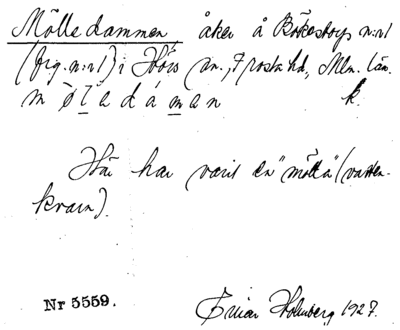 Mölledammen, åker å Bökestorps n:r1
(frg. n:r1) i Hörs sn., Frosta hd, Mlm. län.
m ö l e d á m a n k.
Här har varit en "mölla" (vatten-
kvarn).
Nr 5559. Einar Holmberg 1927.